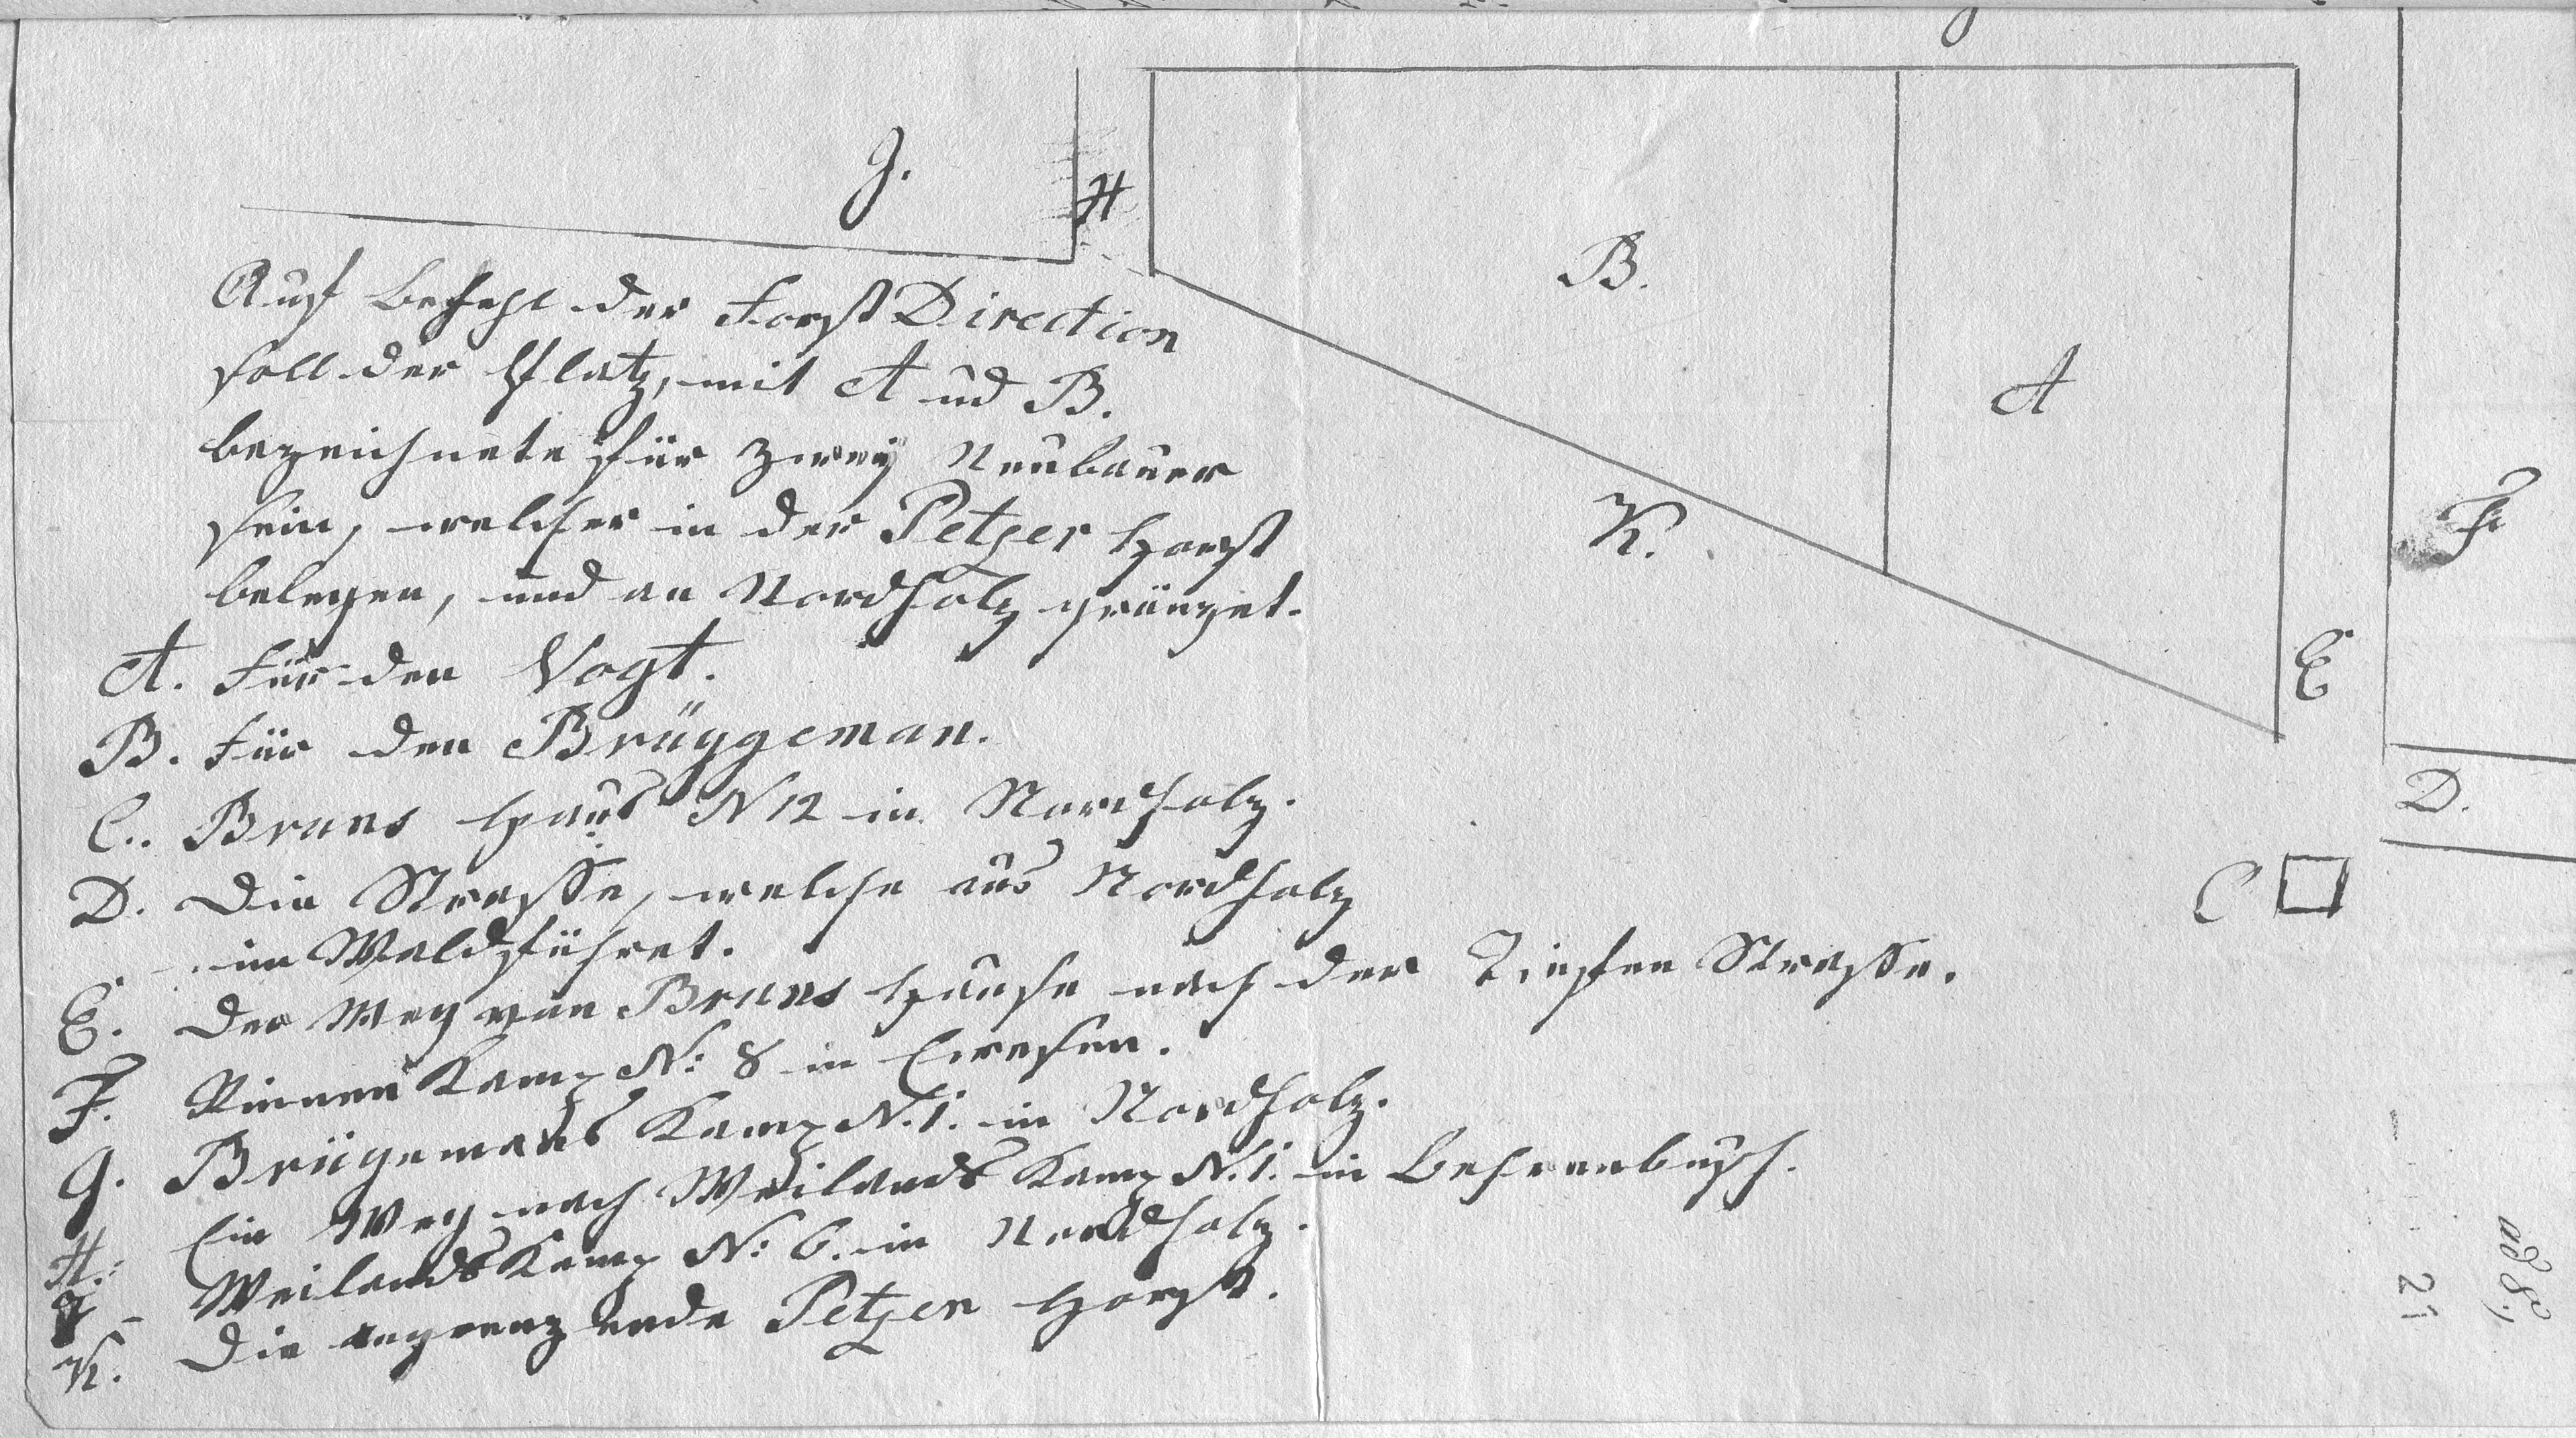 J.
H
B.
A
K.
F
E
D.
C
Auf Befehl der Forst Direction
soll der Platz, mit A und B.
bezeichnete für zwey Neubauer
sein, welcher in der Petzer Horst
belegen, und an Nordholz gränzet.
A. Für den Vogt.
B. Für den Brüggeman.
C. Bruns Haus N 12 in Nordholz.
D. Die Strasse, welche aus Nordholz
im Wald führet.
E. Der Weg von Bruns Hause nach der Tiefen Strasse.
F. Kamp N: 8 in
G. Brügemans Kamp N. 1. in Nordholz.
H. Ein Weg nach Weilands Kamp N. 1. in Behrenbusch.
J - Weilands Kamp N: 6. in Nordholz.
K. Die angrenzende Petzer Horst.
21
ad 8.)